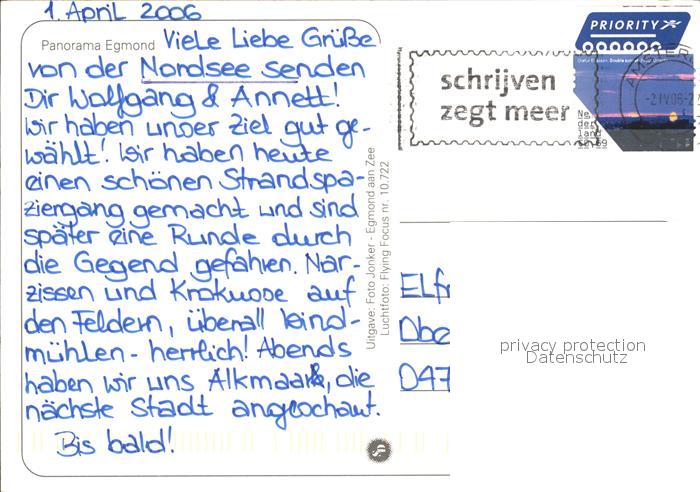 1. April 2006
Panorama Egmond
Viele Liebe Grüße
von der Nordsee senden
Dir Wolfgang & Annett!
Wir haben unser Ziel gut ge-
wählt! Wir haben heute
einen schönen Strandspa-
ziergang gemacht und sind
später eine Runde durch
die Gegend gefahren. Nar-
zissen und Krokusse auf
den Feldern, überall Wind-
mühlen - herrlich! Abends
haben wir uns Alkmaar, die
nächste Stadt angeschaut.
Bis bald!
Uitgave: Foto Jonker - Egmond aan Zee
Luchtfoto: Flying Focus nr. 10.722
schrijven
zegt meer
PRIORITY
Ne
der
land
-2.IV.06-
Elfr
Obe
047
privacy protection
Datenschutz